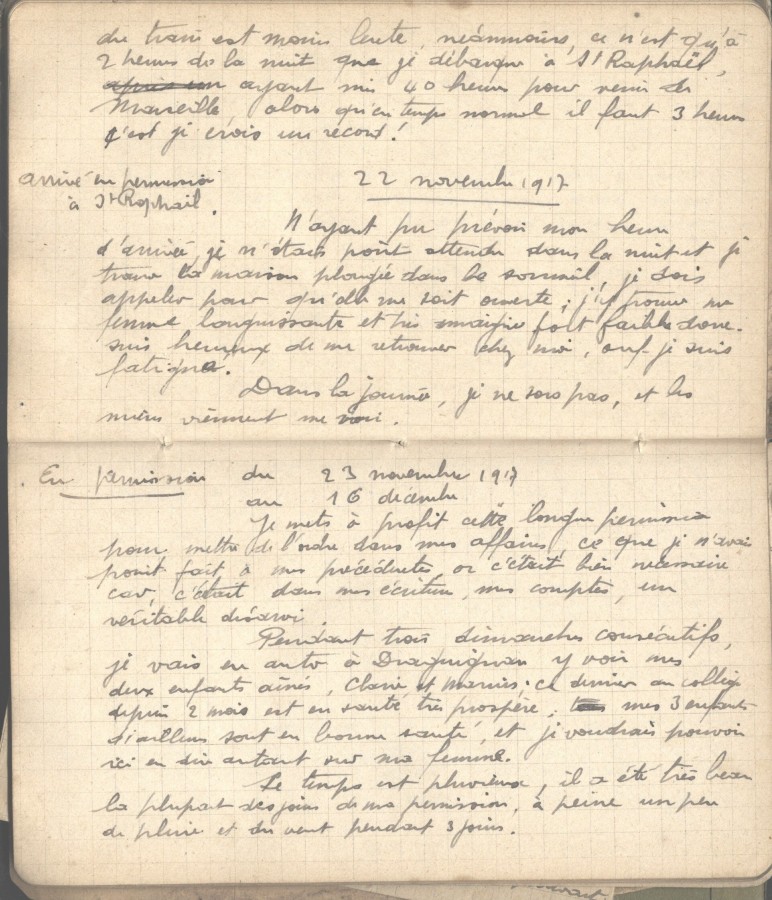 du train est moins lente, néanmoins, ce n'est qu'à
2 heures de la nuit que je débarque à St Raphaël,
après un ayant mis 40 heures pour venir de
Marseille, alors qu'en temps normal il faut 3 heures
c'est je crois un record !
arrivé en permission
à St Raphaël.
22 novembre 1917
N'ayant pu prévoir mon heure
d'arrivée, je n'étais point attendu dans la nuit et je
trouve la maison plongée dans le sommeil, je dois
appeler pour qu'elle me soit ouverte ; j'y trouve ma
femme languissante et très amaigrie fort faible donc.
suis heureux de me retrouver chez moi, ouf je suis
fatigué.
Dans la journée, je ne sors pas, et les
miens viennent me voir.
En permission du 23 novembre 1917
au 16 décembre
Je mets à profit cette longue permission
pour mettre de l'ordre dans mes affaires, ce que je n'avais
point fait à mes précédentes, or c'était bien nécessaire
car, c'était dans mes écritures, mes comptes, un
véritable désarroi.
Pendant trois dimanches consécutifs,
je vais en auto à Draguignan y voir mes
deux enfants aînés, Claire et Marius ; ce dernier au collège
depuis 2 mois est en santé très prospère, tous mes 3 enfants
d'ailleurs sont en bonne santé, et je voudrais pouvoir
ici en dire autant sur ma femme.
Le temps est pluvieux, il a été très beau
la plupart des jours de ma permission, à peine un peu
de pluie et du vent pendant 3 jours.